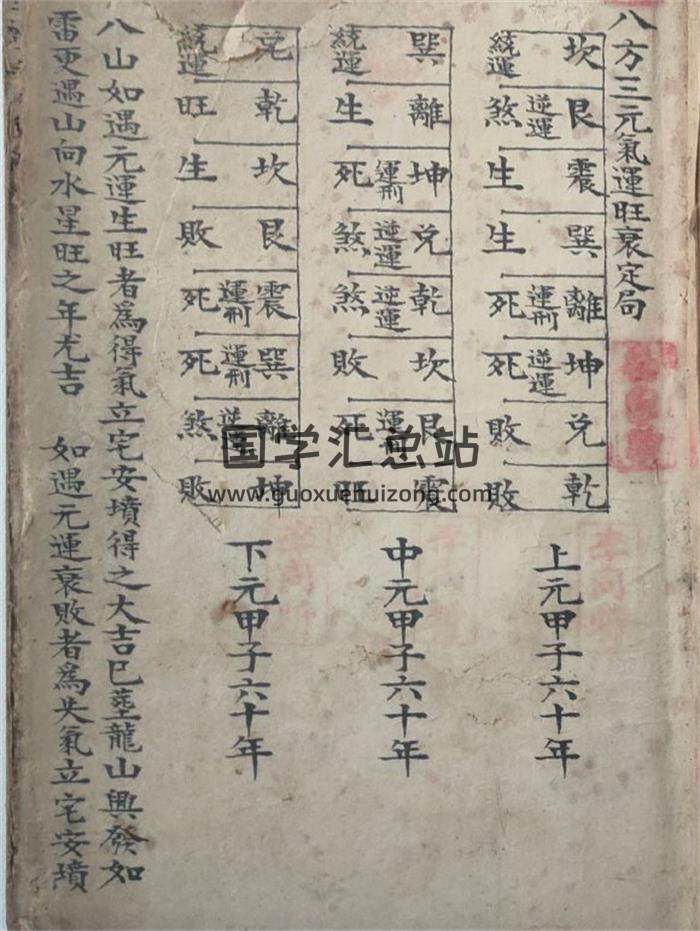 八方三元氣運旺衰定局
坎 統運
艮 逆運 煞
震 生
巽 生
離 運刑 死
坤 逆運 死
兌 敗
乾 敗
上元甲子六十年
巽 統運
離 生
坤 運刑 死
兌 逆運 煞
乾 逆運 煞
坎 敗
艮 運 死
震 旺
中元甲子六十年
兌 統運
乾 旺
坎 生
艮 敗
震 運刑 死
巽 運刑 死
離 逆 煞
坤 敗
下元甲子六十年
八山如遇元運生旺者為得氣立宅安墳得之大吉已塟龍山興發如
雷更遇山向水星旺之年尤吉 如遇元運衰敗者為失氣立宅安墳
国学汇总站
www.guoxuehuizong.com